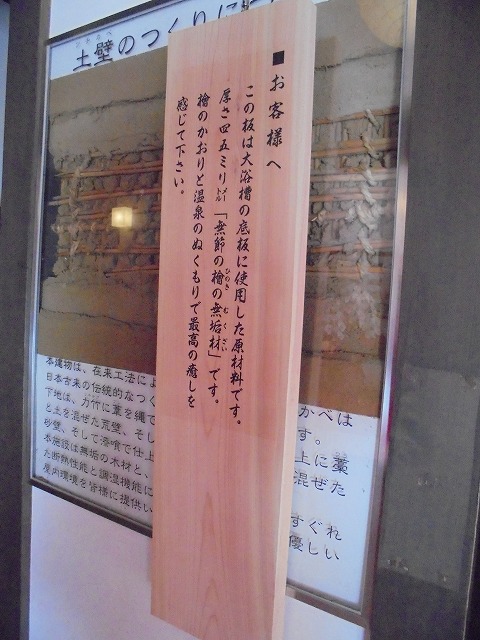 ■お客様へ
この板は大浴槽の底板に使用した原材料です。
厚さ四五ミリメートル「無節の檜の無垢材」です。
檜のかおりと温泉のぬくもりで最高の癒しを
感じて下さい。
土壁のつくりに
つちかべ
ひのき むくざい
本建物は、在来工法によ
日本古来の伝統的なつく
下地は、力竹に藁を縄で
と土を混ぜた荒壁、そし
砂壁、そして漆喰で仕上
本施設は無垢の木材と、
た断熱性能と調湿機能に
屋内環境を皆様に提供い
かべは
す。
上に藁
混ぜた
すぐれ
優しい